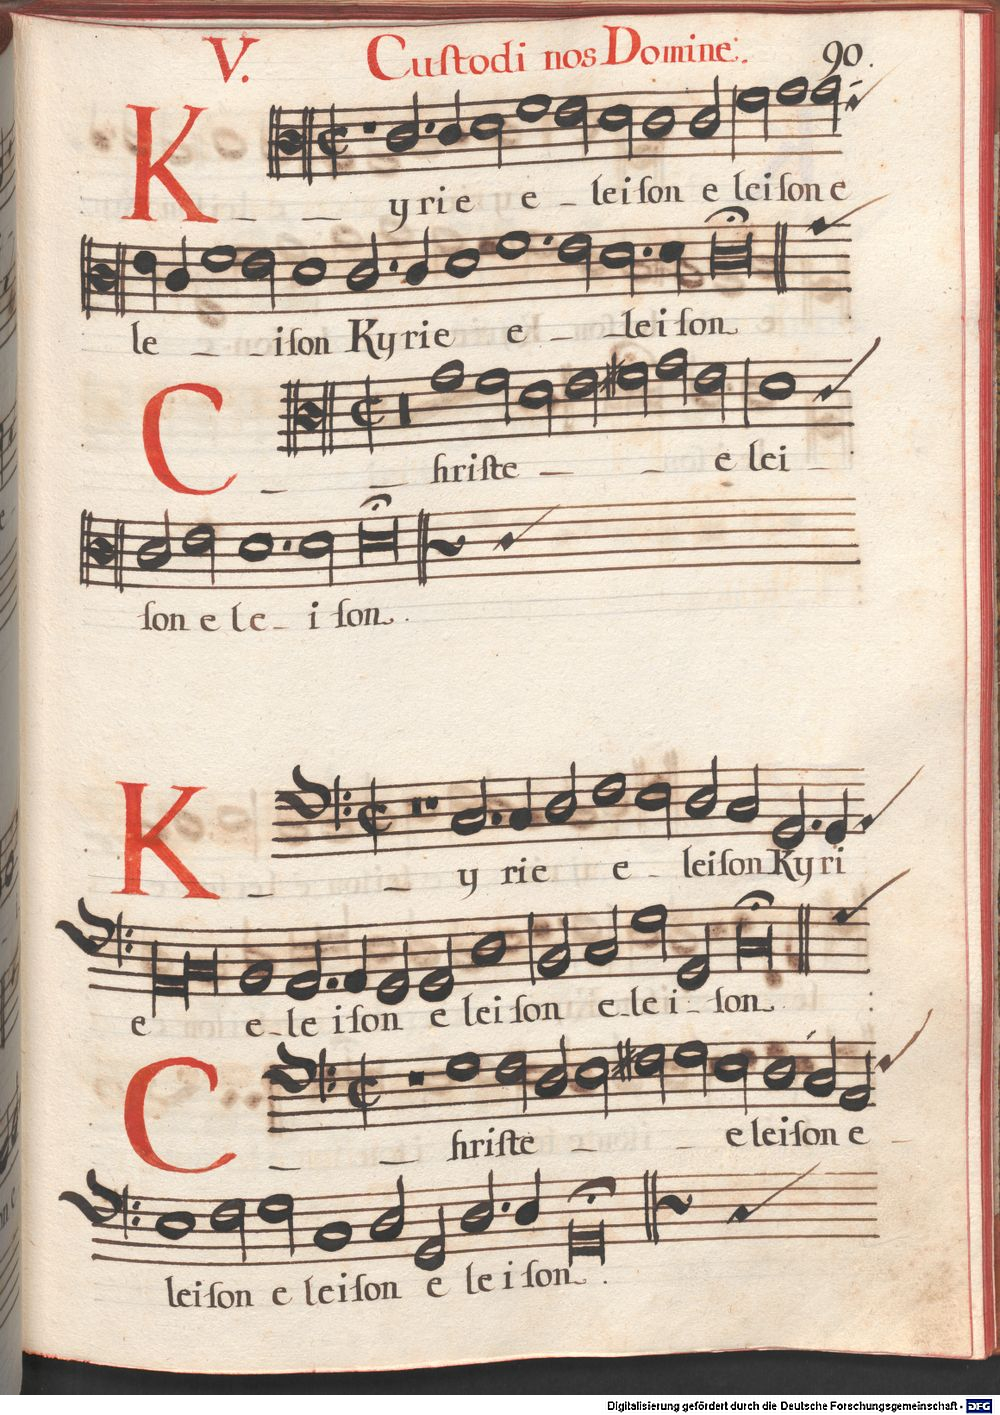 V. Custodi nos Domine. 90.
K _ _ yrie e _ leiſon e leiſon e
le _ _ iſon Kyrie e _ _ leiſon
C _ _ hriſte _ _ e lei _
ſon e le _ i ſon.
K _ _ y rie e _ leiſon Kyri
e _ e _ le iſon e leiſon e _ le i _ ſon
C _ _ hriſte _ _ e leiſon e _
leiſon e leiſon e le i ſon.
Digitalisierung gefördert durch die Deutsche Forschungsgemeinschaft - DFG